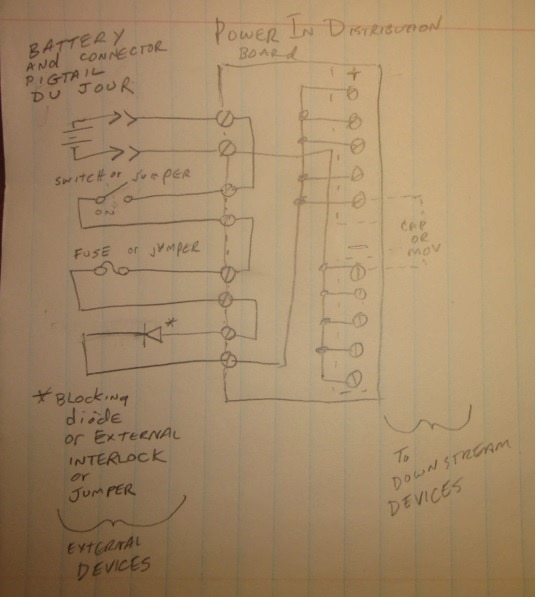 POWER IN DISTRIBUTION
BOARD
BATTERY
AND CONNECTOR
PIGTAIL
DU JOUR
+
SWITCH or JUMPER
ON
FUSE or JUMPER
CAP
OR
MOV
—
*
* BLOCKING
diode
or EXTERNAL
INTERLOCK
or
JUMPER
EXTERNAL
DEVICES
To
DOWNSTREAM
DEVICES